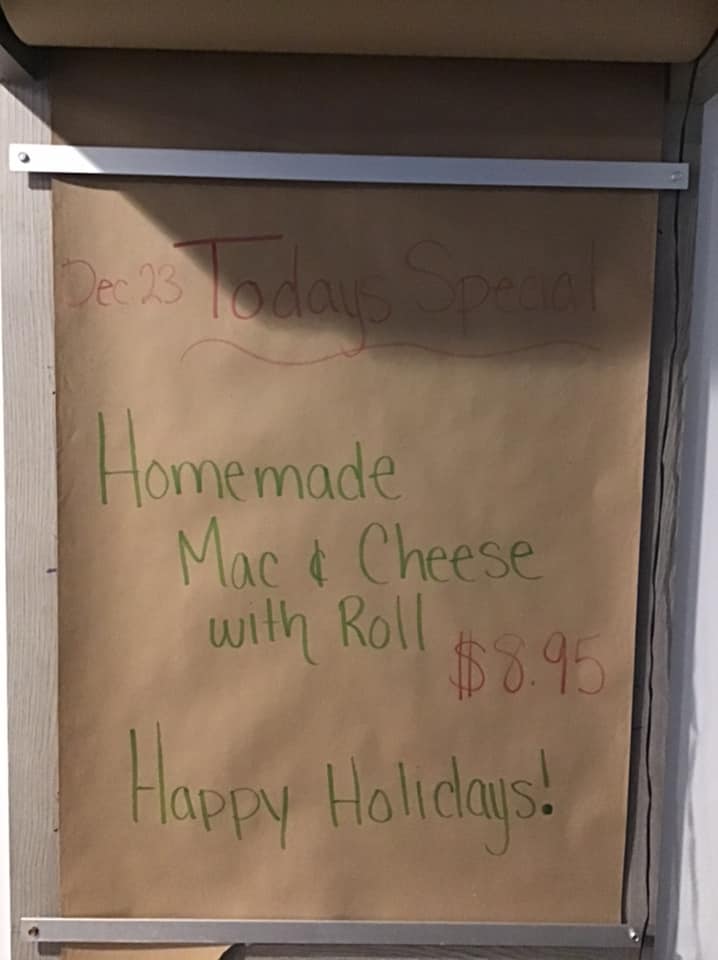 Dec 23 Todays Special
Homemade
Mac & Cheese
with Roll
$8.95
Happy Holidays!